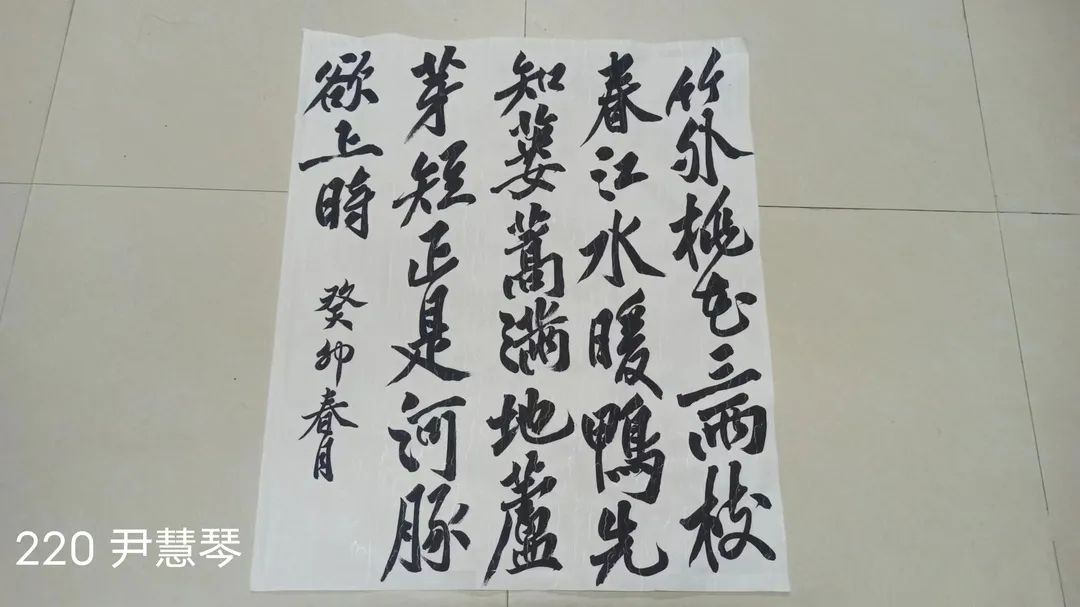 竹外桃花三兩枝
春江水暖鴨先
知蔞蒿滿地蘆
芽短正是河豚
欲上時
癸卯春月
220 尹慧琴